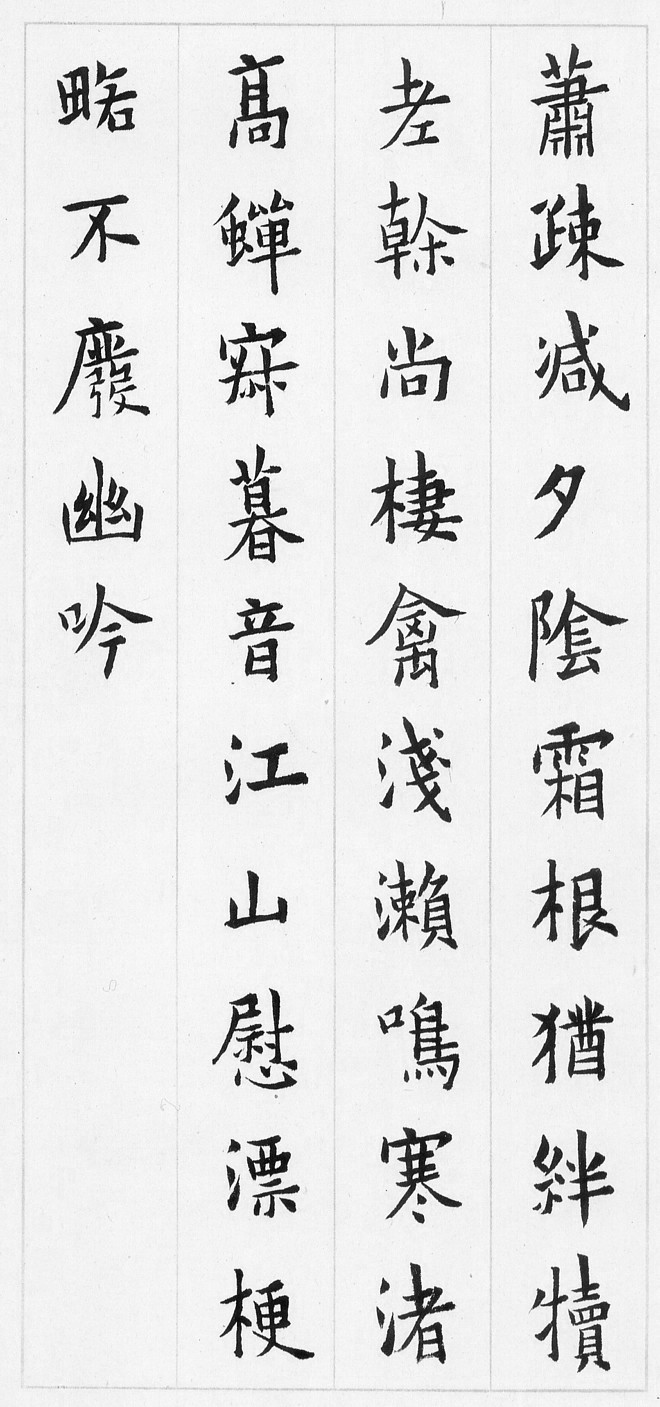 蕭疎減夕陰霜根猶絆犢
老幹尚棲禽淺瀨鳴寒渚
髙蟬寂暮音江山慰漂梗
略不廢幽吟